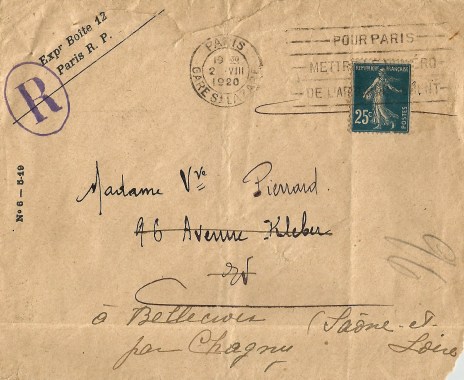 Expr Boite 12
Paris R. P.
R
PARIS
19
2 VIII
1920
GARE ST LAZARE
POUR PARIS
METTRE LE NUMERO
DE L'ARRONDISSEMENT
REPUBLIQUE FRANÇAISE
25c
N° 6 - 5-19
Madame Vve Pierrard
96 Avenue Kleber
à Bellecroix (Saône-et-
par Chagny Loire